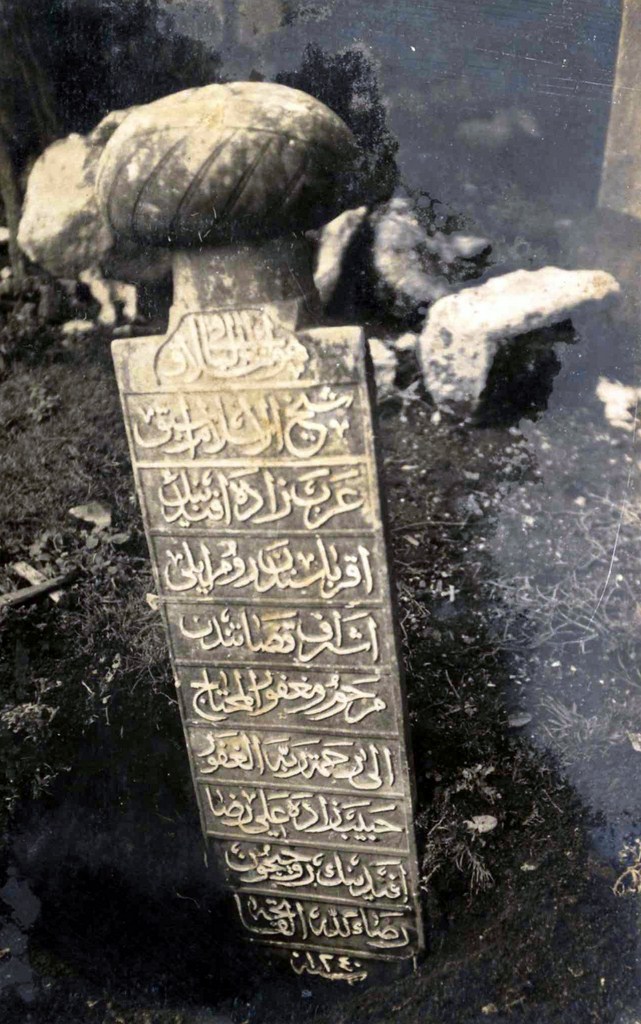 هو الخلاق الباقي
شيخ الاسلام سابق
عرب زاده افندینك
اقرباسندن روم ایلی
اشراف قضاتندن
مرحوم و مغفور المحتاج
الى رحمة ربه الغفور
حبيب زاده علی رضا
افندینك روحیچون
رضاء لله الفاتحه
سنه ١٢٤٠